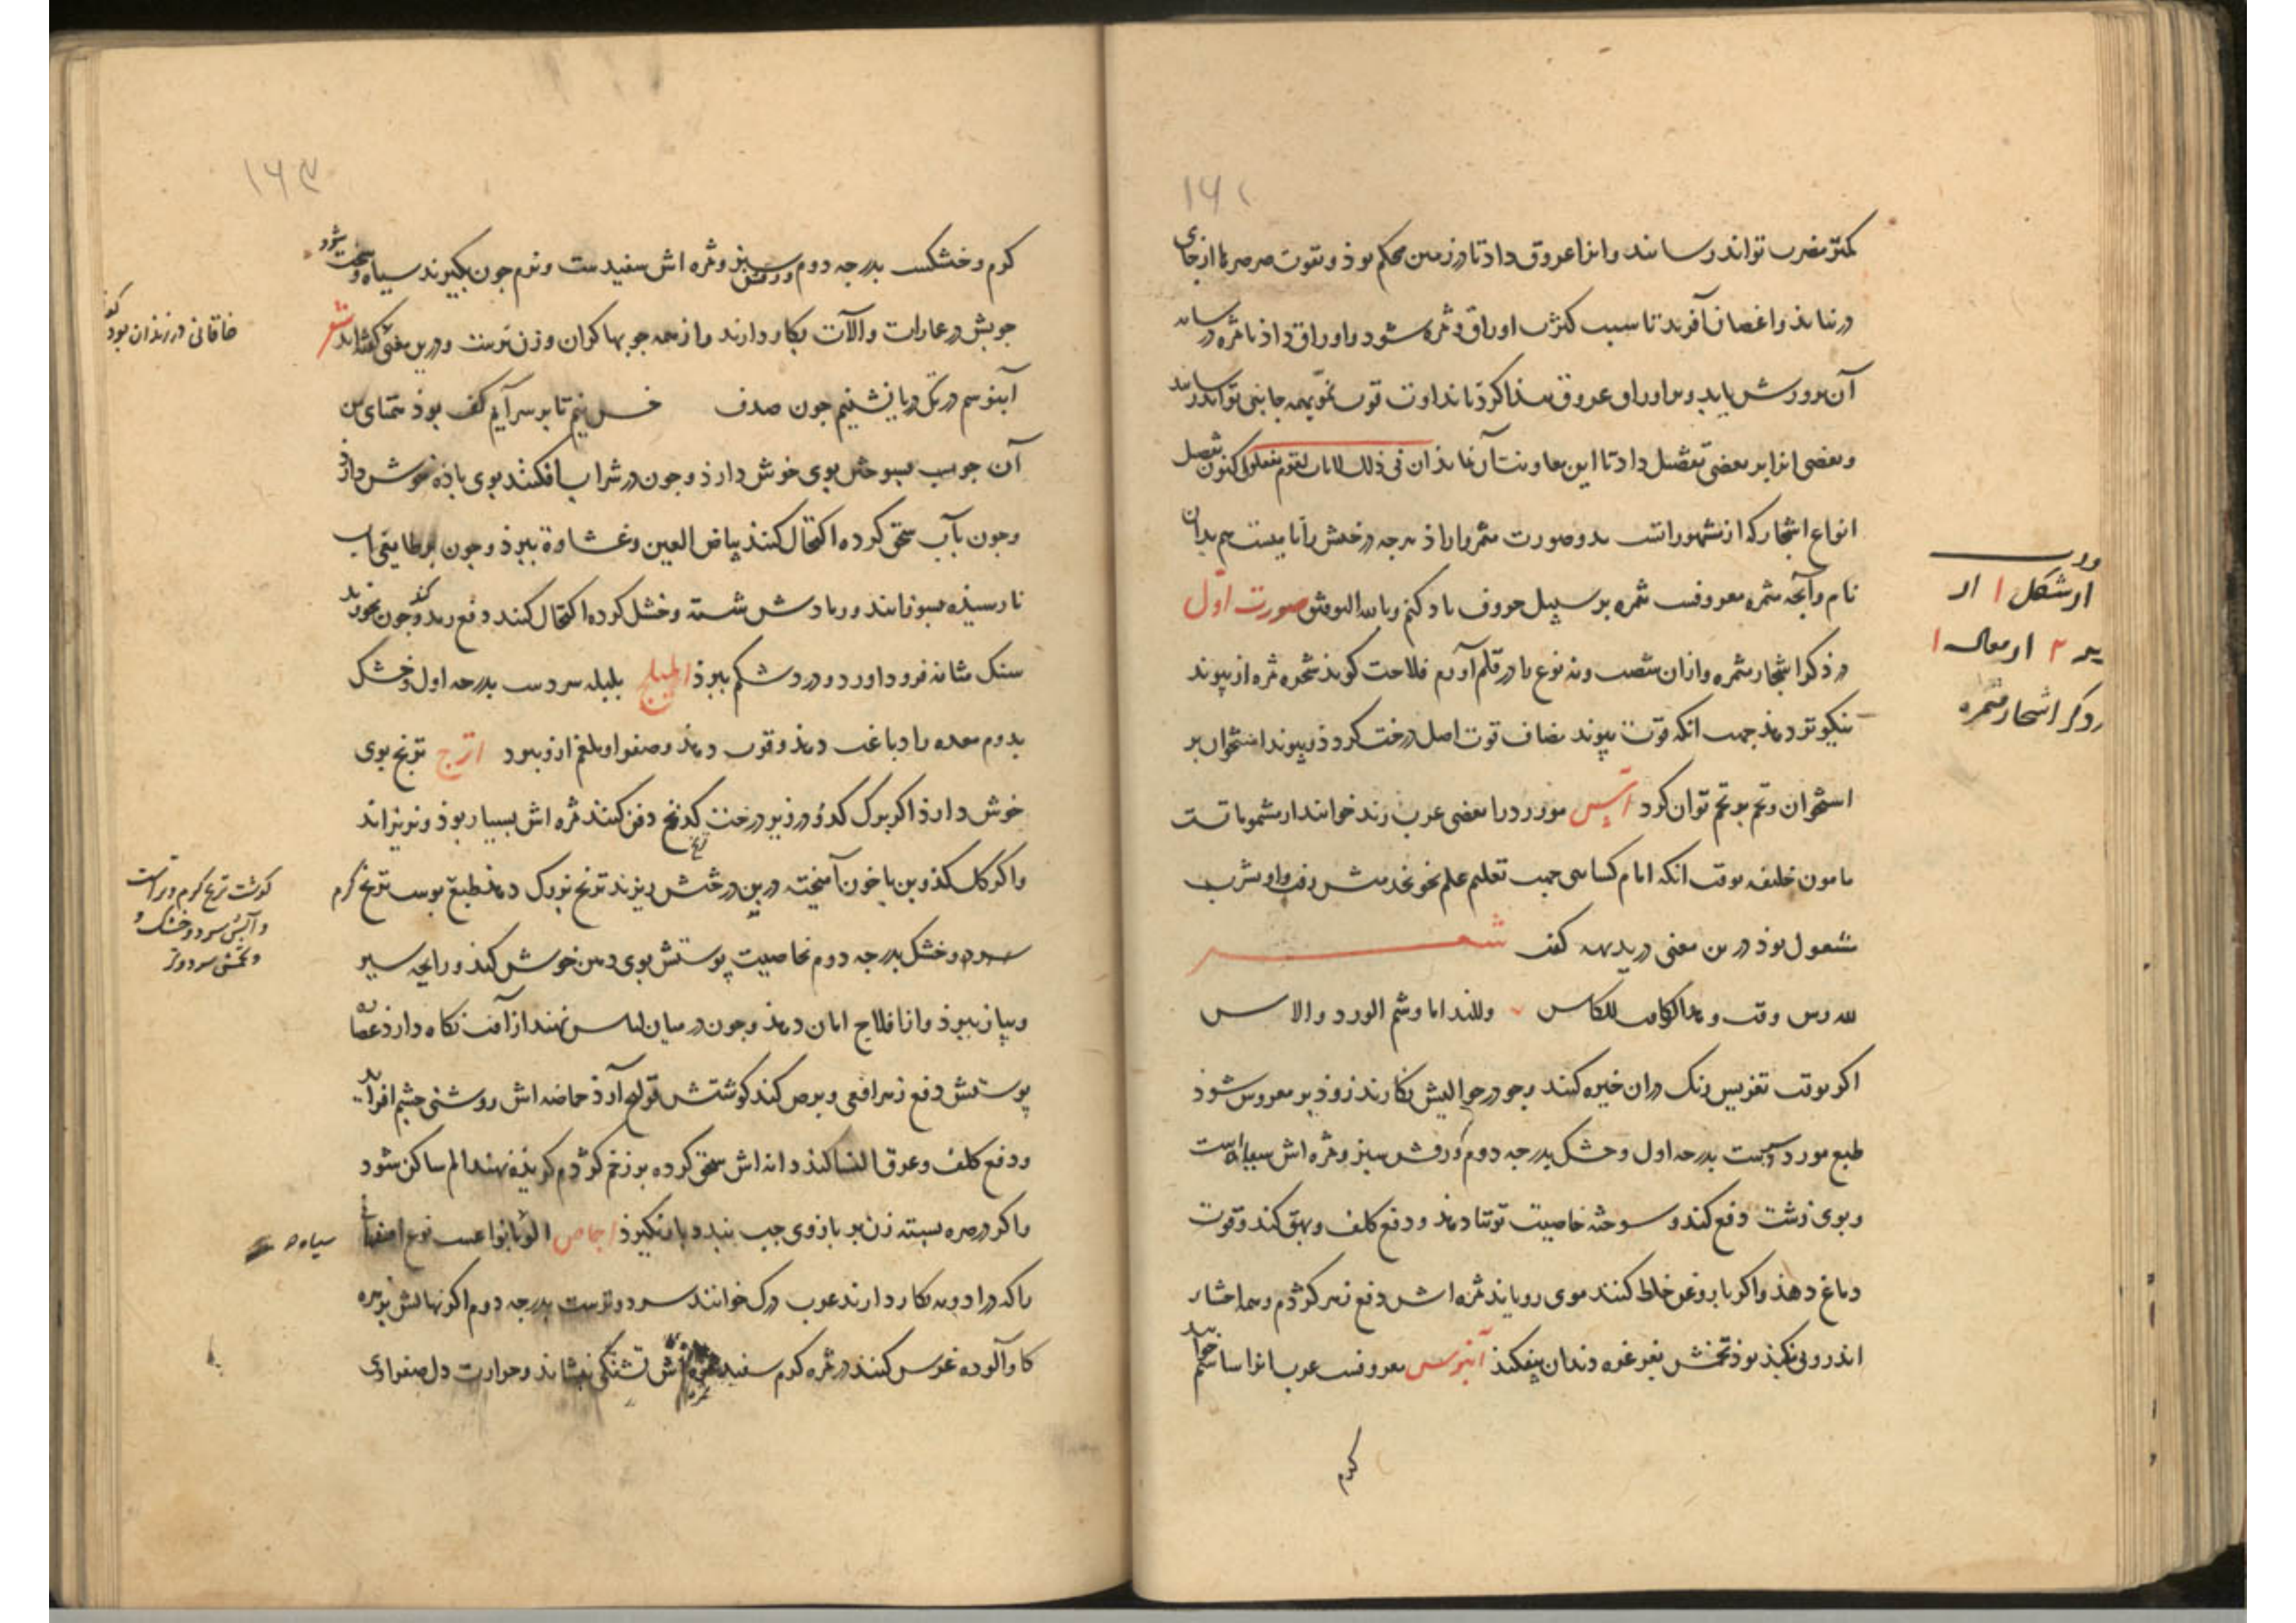 ۱۶۲
کمتر مضرت تواند رسانند و انرا عروق داد تا در زمین محکم بوذ و بقوت صرصر ها از جای
در نیاید و اغصان آفرید تا سبب کثرت اوراق و ثمره شود و اوراق داذ تا ثمره در سایه
آن پرورش یابد و بر اوراق عروق پیدا کرد تا نداوت قوت نمو بهمه جانبی تواند رسانید
و بعضی انرا بر بعضی تفضیل داد تا این معاونت آن نماید ان فی ذلک لایات لقوم یعقلون اکنون تفصیل
انواع اشجار که از مشهوراتست بدو صورت مثمر وار اذ هرچه درختش را نامیست هم بدان
نام و آنچه ثمره معروفست ثمره بر سبیل حروف یاد کنم و بالله التوفیق صورت اول
در ذکر اشجار مثمره و ازان شصت و نه نوع یا در قلم آورم فلاحت کوید شجره ثمره از پیوند
نیکوتر دهد جهت انکه قوت پیوند مضاف قوت اصل درخت کردد و پیوند استخوان بر
استخوان و تخم بر تخم توان کرد آس مورد را بعضی عرب رند خوانند از مشموماتست
مامون خلیفه بوقت انکه امام کسایی جهت تعلیم علم نحو بخدمتش رفت و او بشرب
مشغول بوذ درین معنی در بدیهه کفت شعر
للدرس وقت و هذا الوقت للکاس وللنداما وشم الورد والاس
اکر بوقت تغریس رنک دران خیره کنند و جو در حوالیش بکارند زوذ بر معروس شوذ
طبع مورد سردست بدرجه اول و خشک بدرجه دوم ورقش سبز و ثمره اش سیاه است
و بوی زشت دفع کند و سوخته خاصیت توتیا دهد و دفع کلف و بهق کند و قوت
دماغ دهذ و اکر با روغن خلط کنند موی رویاند ثمره اش دفع زهر کژدم و
اندرونی بکند بوذ تخمش بغرغره دندان بیفکند آبنوس معروفست عرب انرا ساسم خوانند
کرم
ارشکل ا
ذکر اشجار مثمره
۱۶۳
کرم و خشکست بدرجه دوم ورقش سبز و ثمره اش سفیدست و نرم چون بکیرند سیاه و سخت شود
چوبش در عمارات و آلات بکار دارند و از همه چوبها کران وزن ترست و درین معنی کفته اند شعر
آبنوسم در بن دریا نشینم چون صدف خس نیم تا بر سر آیم کف بوذ همتای من
آن چوب بسوختن بوی خوش دارذ و چون در شراب افکنند بوی باده خوش دارد
و چون بآب سحق کرده اکتحال کنند بیاض العین و غشاوة ببرذ و چون بر طابقی آب
نارسیذه بسوزانند و رمادش شسته و خشک کرده اکتحال کنند دفع رمد کند و چون بخورند
سنک مثانه فرود آورد و درد شکم ببرذ اهلیلج بلیله سردست بدرجه اول و خشک
بدوم معده را دباغت دهذ و قوت دهذ و صفرا و بلغم ازو ببرد اترج ترنج بوی
خوش دارذ اکر برک کدو در زیر درخت ترنج دفن کنند ثمره اش بسیار بوذ و نریزاند
و اکر کل کندوبن با خون آمیخته در بن درختش ریزند ترنج بزرک دهذ طبع پوست ترنج کرم
سرد و خشک بدرجه دوم بخاصیت پوستش بوی دهن خوش کند و رایحه سیر
و پیاز ببرذ و از افلاج امان دهذ و چون در میان لباس نهند از آفت نکاه دارذ عصاره
پوستش دفع زهر افعی و برص کند کوشتش قولنج آرذ حماضه اش روشنی چشم افزاید
و دفع کلف و عرق النسا کند دانه اش سحق کرده بر زخم کژدم کزیذه نهند الم ساکن شود
و اکر در صره بسته زن بر بازوی چپ بندد بار نکیرذ اجاص آلو بانواعست نوع اصفهانی
را که در ادویه بکار دارند عرب درک خوانند سرد و ترست بدرجه دوم اکر نهالش بزهره
کاو آلوده غرس کنند در ثمره کرم سفید ثمره اش تشنکی بنشاند و حرارت دل صفراوی
خاقانی در زندان بود کفته
کوشت ترنج کرم و تر است
و آبش سرد و خشک و
و تخمش سرد و تر
سیاه